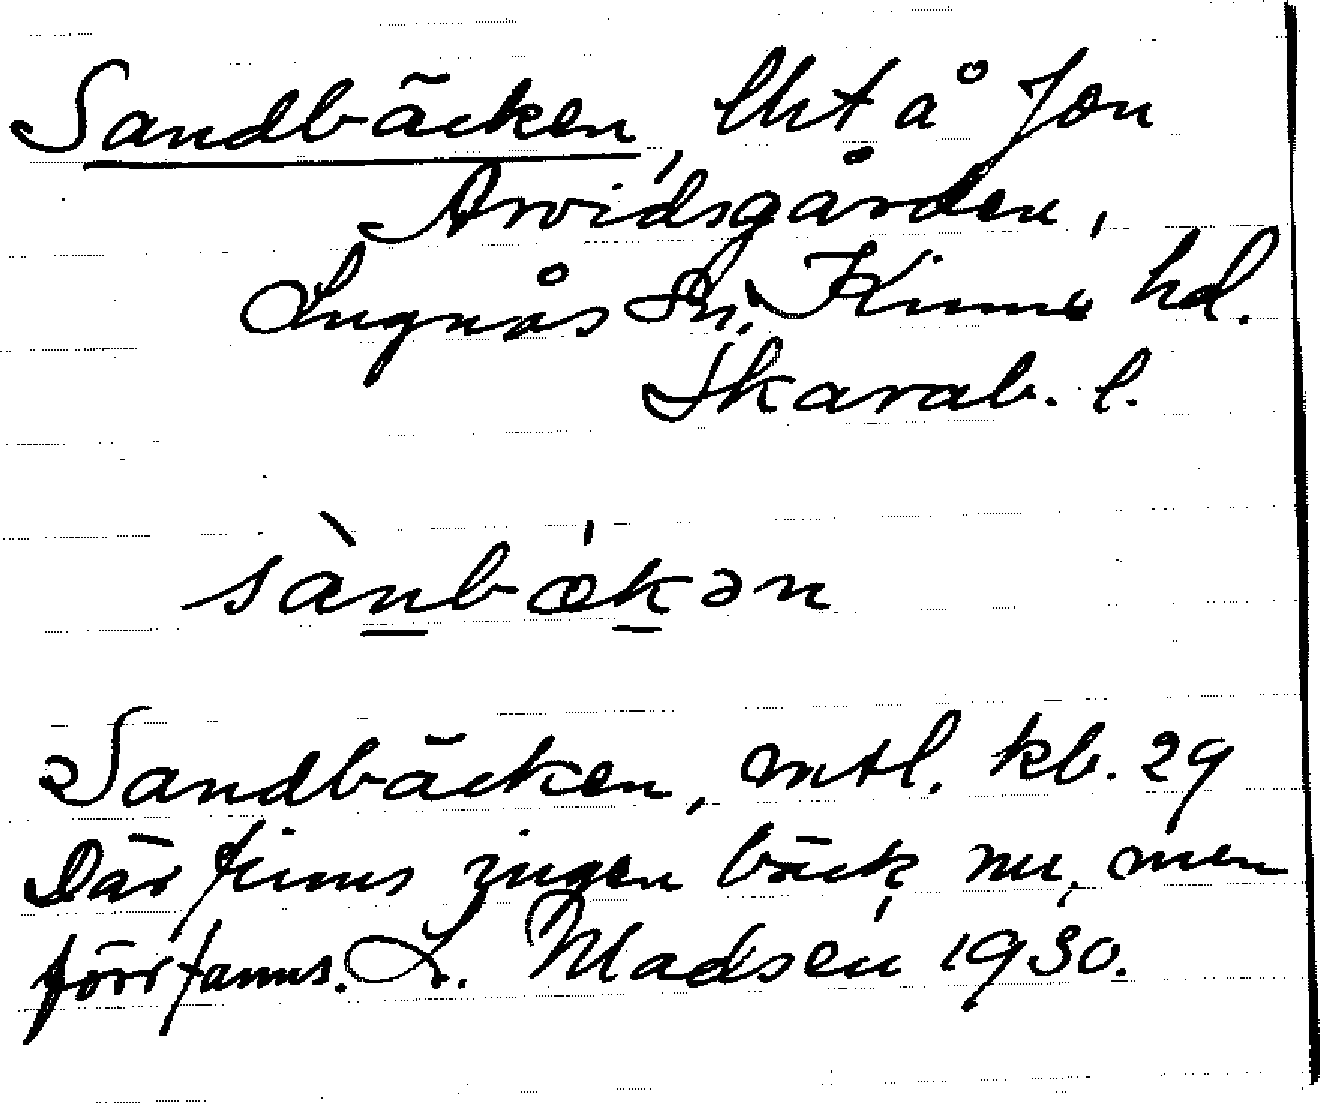 Sandbäcken, lht å Jon
Arvidsgården,
Lugnås sn, Kinne hd.
Skarab. l.
sànbækən
Sandbäcken, mtl. kb. 29
Där finns ingen bäck nu, men
förr fanns. L. Madsén 1930.